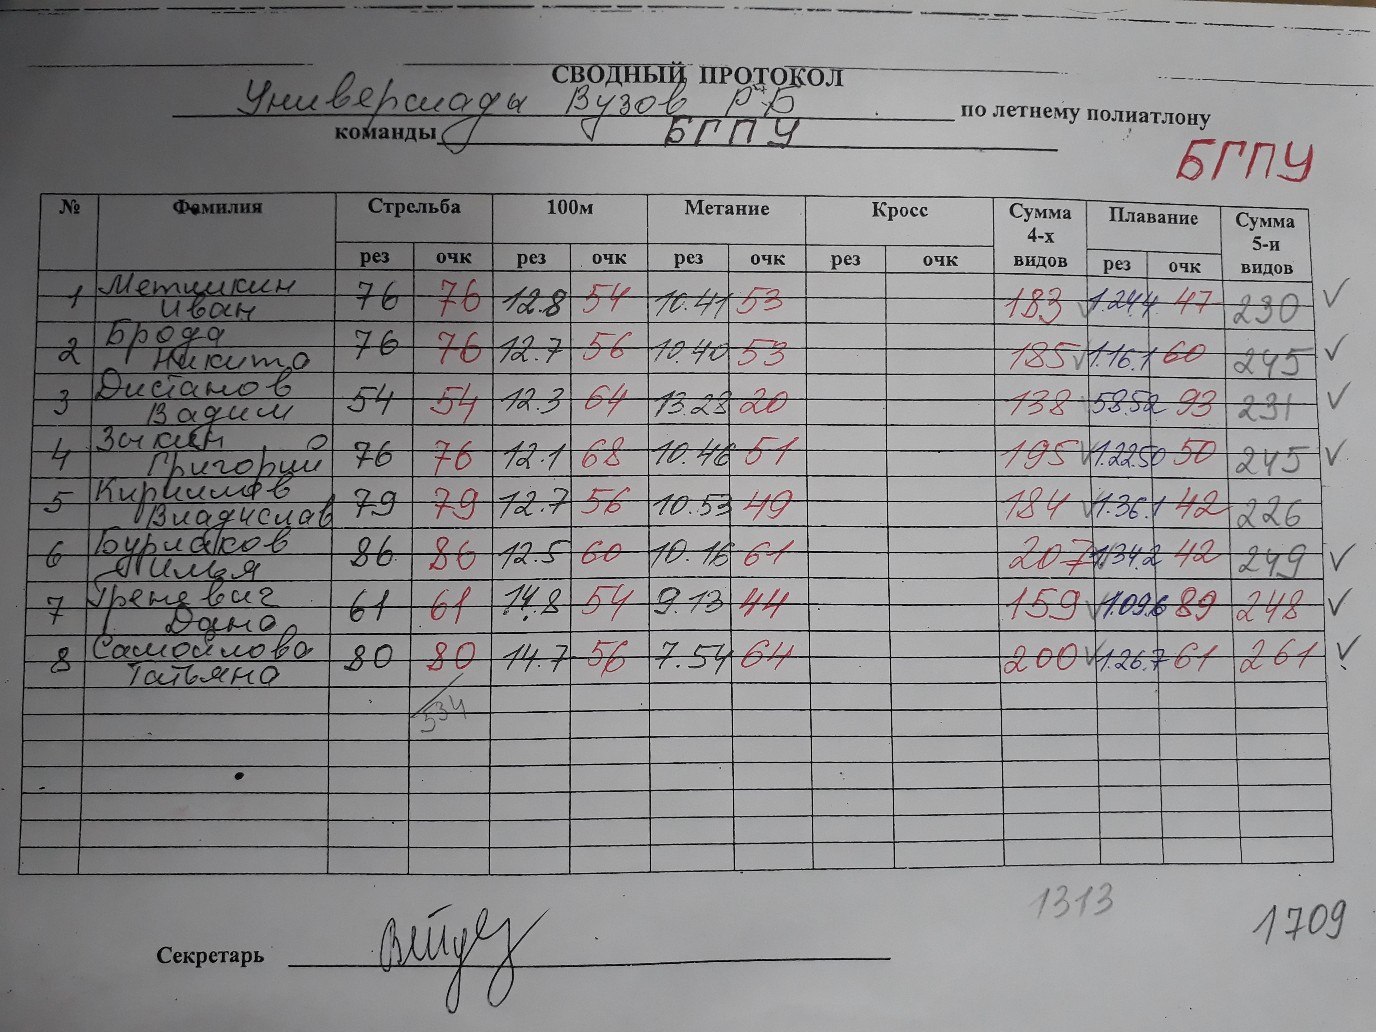 СВОДНЫЙ ПРОТОКОЛ
Универсиады Вузов РБ по летнему полиатлону
команды БГПУ
БГПУ
№ Фамилия Стрельба 100м Метание Кросс Сумма 4-х видов Плавание Сумма 5-и видов
рез очк рез очк рез очк рез очк рез очк
1 Метшин Иван 76 76 12.8 54 10.41 53 183 1.24,4 47 230
2 Брода Никита 76 76 12.7 56 10.40 53 185 1.16.1 60 245
3 Дистанов Вадим 54 54 12.3 64 13.28 20 138 58.52 93 231
4 Григорий 76 76 12.1 68 10.46 51 195 1.22.50 50 245
5 Владислав 79 79 12.7 56 10.53 49 184 1.36.1 42 226
6 Бурлаков Илья 86 86 12.5 60 10.16 61 207 1.34.2 42 249
7 Дана 61 61 14.8 54 9.13 44 159 1.09.6 89 248
8 Самойлова Татьяна 80 80 14.7 56 7.54 64 200 1.26.7 61 261
534
1313
1709
Секретарь